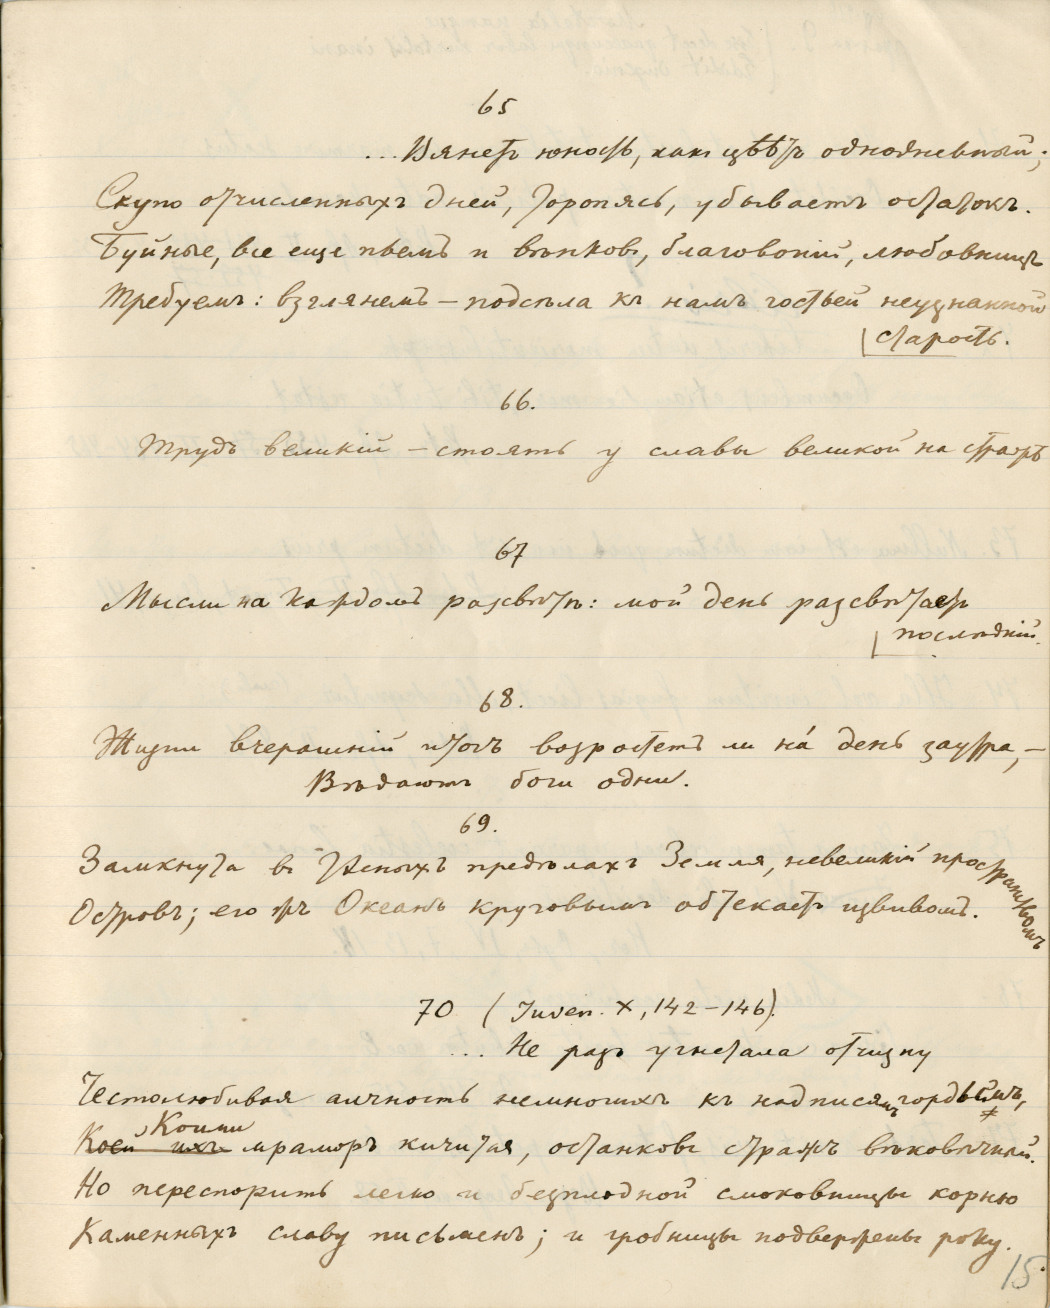 65
... Вянетъ юность, какъ цвѣтъ однодневный;
Скупо отчисленныхъ дней, торопясь, убываетъ остатокъ.
Буйные, все еще пьемъ и вѣнковъ, благовоній, любовницъ
Требуемъ: взглянемъ – подсѣла къ намъ гостьей неузнанной
старость.
66.
Трудъ великій – стоять у славы великой на стражѣ
67
Мысли на каждомъ разсвѣтѣ: мой день разсвѣтаетъ
послѣдній.
68.
Жизни вчерашній итогъ возростетъ ли на́ день заутра, –
Вѣдаютъ боги одни.
69.
Замкнута въ тѣсныхъ предѣлахъ Земля, невеликій пространствомъ
Островъ; его жъ Океанъ круговымъ обтекаетъ извивомъ.
70 (Juven. X, 142–146).
... Не разъ угнетала отчизну
Честолюбивая алчность немногихъ къ надписямъ гордымъ,
Коей ихъ Коими мраморъ кичится, останковъ стражъ вѣковѣчный.
Но переспорить легко и безплодной смоковницы корню
Каменныхъ славу письменъ; и гробницы подвержены року.
15.